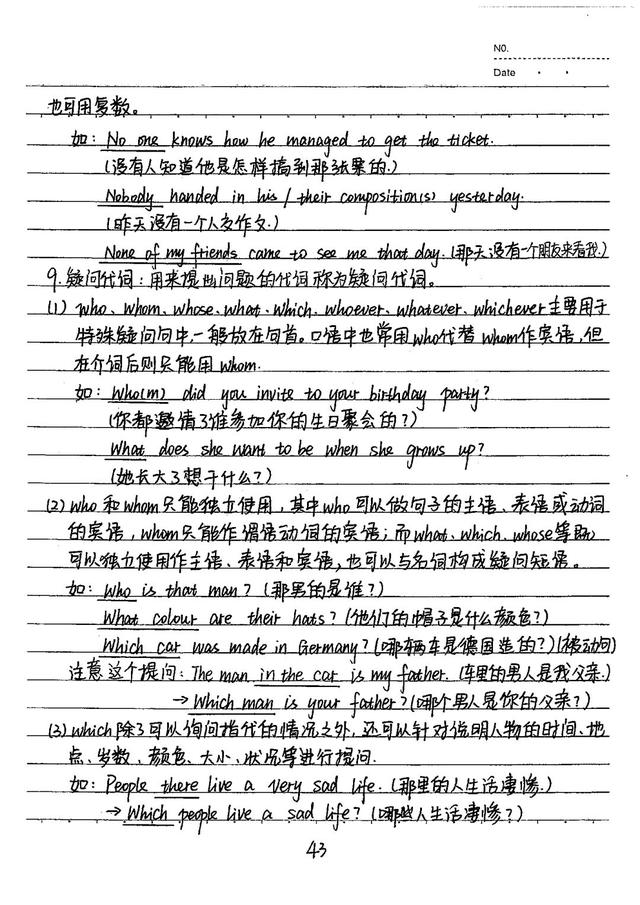 N0.
Date
也可用复数。
如: No one knows how he managed to get the ticket.
(没有人知道他是怎样搞到那张票的.)
Nobody handed in his / their composition(s) yesterday.
(昨天没有一个人交作文.)
None of my friends came to see me that day. (那天没有一个朋友来看我.)
9. 疑问代词: 用来提出问题的代词称为疑问代词。
(1) who、whom、whose、what、which、whoever、whatever、whichever 主要用于
特殊疑问句中,一般放在句首。口语中也常用who代替whom作宾语,但
在介词后则只能用whom.
如: Who(m) did you invite to your birthday party?
(你都邀请了谁参加你的生日聚会的?)
What does she want to be when she grows up?
(她长大了想干什么?)
(2) who 和whom只能独立使用,其中who可以做句子的主语、表语或动词
的宾语,whom只能作谓语动词的宾语;而what、which、whose等既
可以独立使用作主语、表语和宾语,也可以与名词构成疑问短语。
如: Who is that man? (那男的是谁?)
What colour are their hats? (他们的帽子是什么颜色?)
Which car was made in Germany? (哪辆车是德国造的?) (被动问)
注意这个提问: The man in the car is my father. (车里的男人是我父亲.)
→ Which man is your father? (哪个男人是你的父亲?)
(3) which除了可以询问指代的情况之外,还可以针对说明人物的时间、地
点、岁数、颜色、大小、状况等进行提问.
如: People there live a very sad life. (那里的人生活凄惨.)
→ Which people live a sad life? (哪些人生活凄惨?)
43